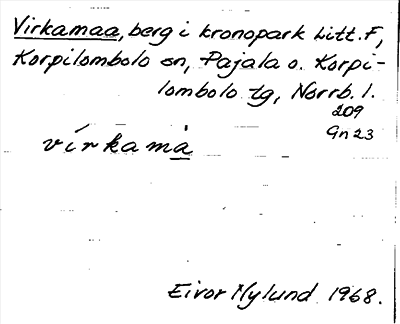 Virkamaa, berg i kronopark Litt. F,
Korpilombolo sn, Pajala o. Korpi-
lombolo tg, Norrb. l.
209
Gn 23
vírkamȧ
Eivor Nylund 1968.